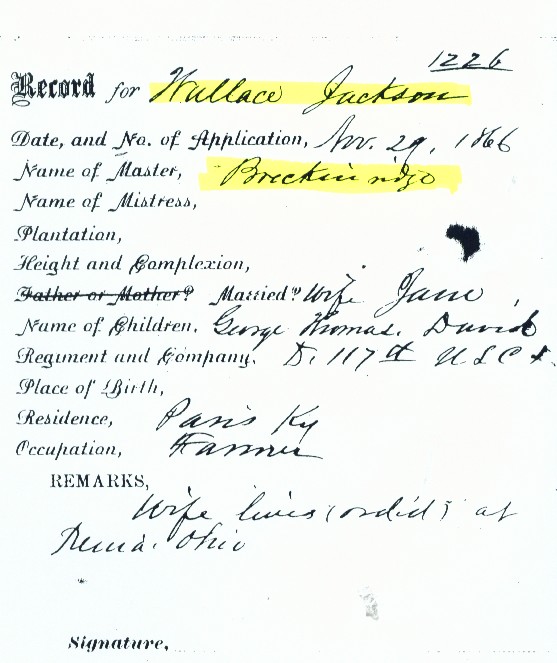 1226
Record for Wallace Jackson
Date, and No. of Application, Nov. 29, 1866
Name of Master, Breckinridge
Name of Mistress,
Plantation,
Height and Complexion,
Father or Mother? Married? Wife Jane,
Name of Children. George Thomas. David
Regiment and Company. D. 117th USCT.
Place of Birth,
Residence, Paris Ky
Occupation, Farmer
REMARKS,
Wife lives (or did) at
Xenia. Ohio
Signature,